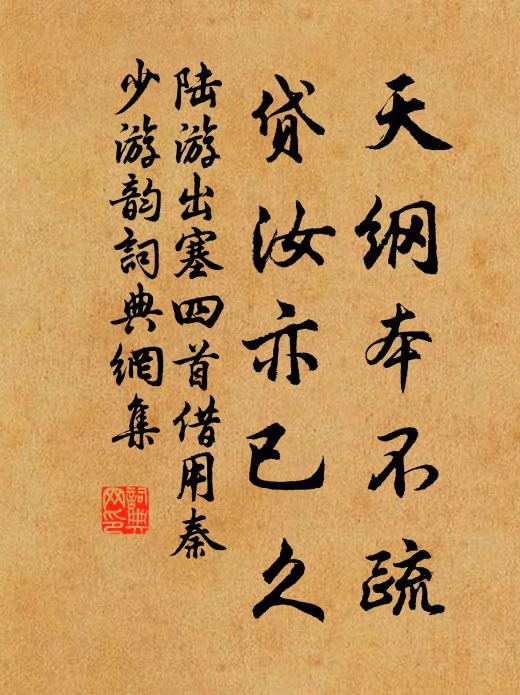 天纲本不疏
贷汝亦已久
陆游出塞四首借用秦
少游韵词典網集
詞典网印